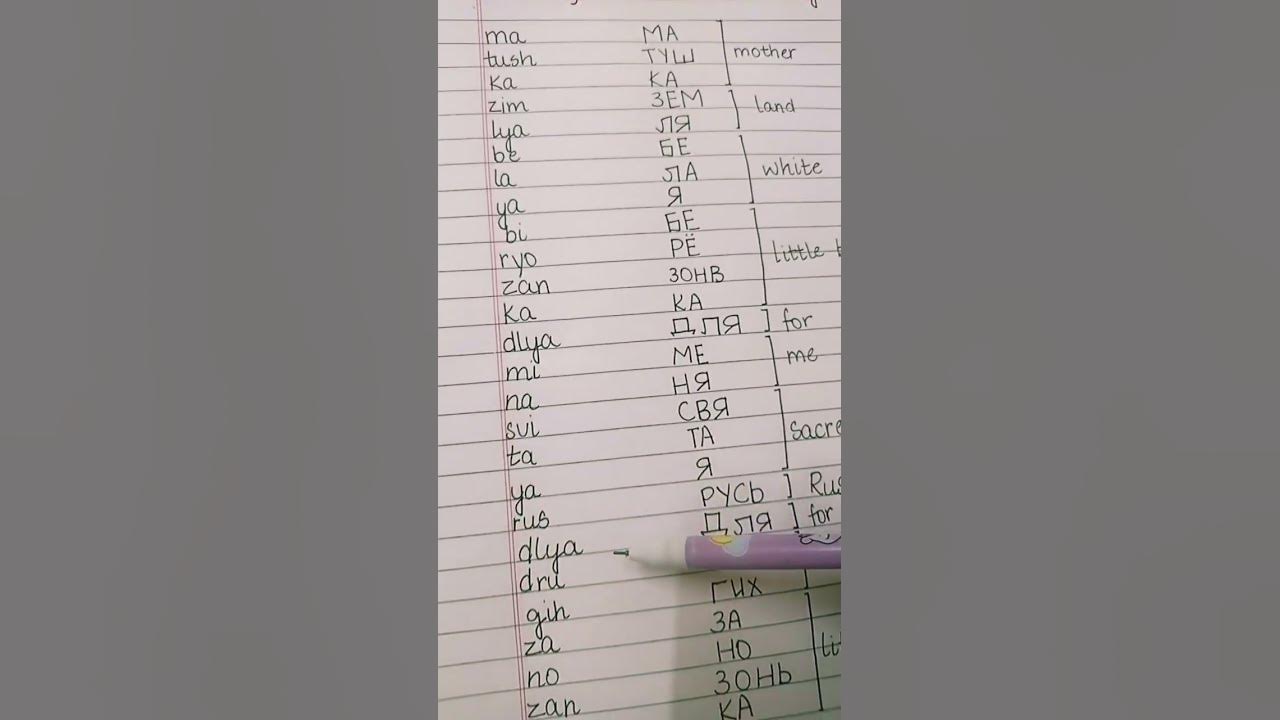 ma МА
tush ТУШ mother
Ka КА
zim ЗЕМ land
lya ЛЯ
be БЕ
la ЛА white
ya Я
bi БЕ
ryo РЁ little
zan ЗОНВ
Ka КА
dlya ДЛЯ for
mi МЕ me
na НЯ
svi СВЯ
ta ТА Sacre
ya Я
rus РУСЬ Rus
dlya ДЛЯ for
dru
gih ГИХ
za ЗА
no НО
zan ЗОНЬ
КА